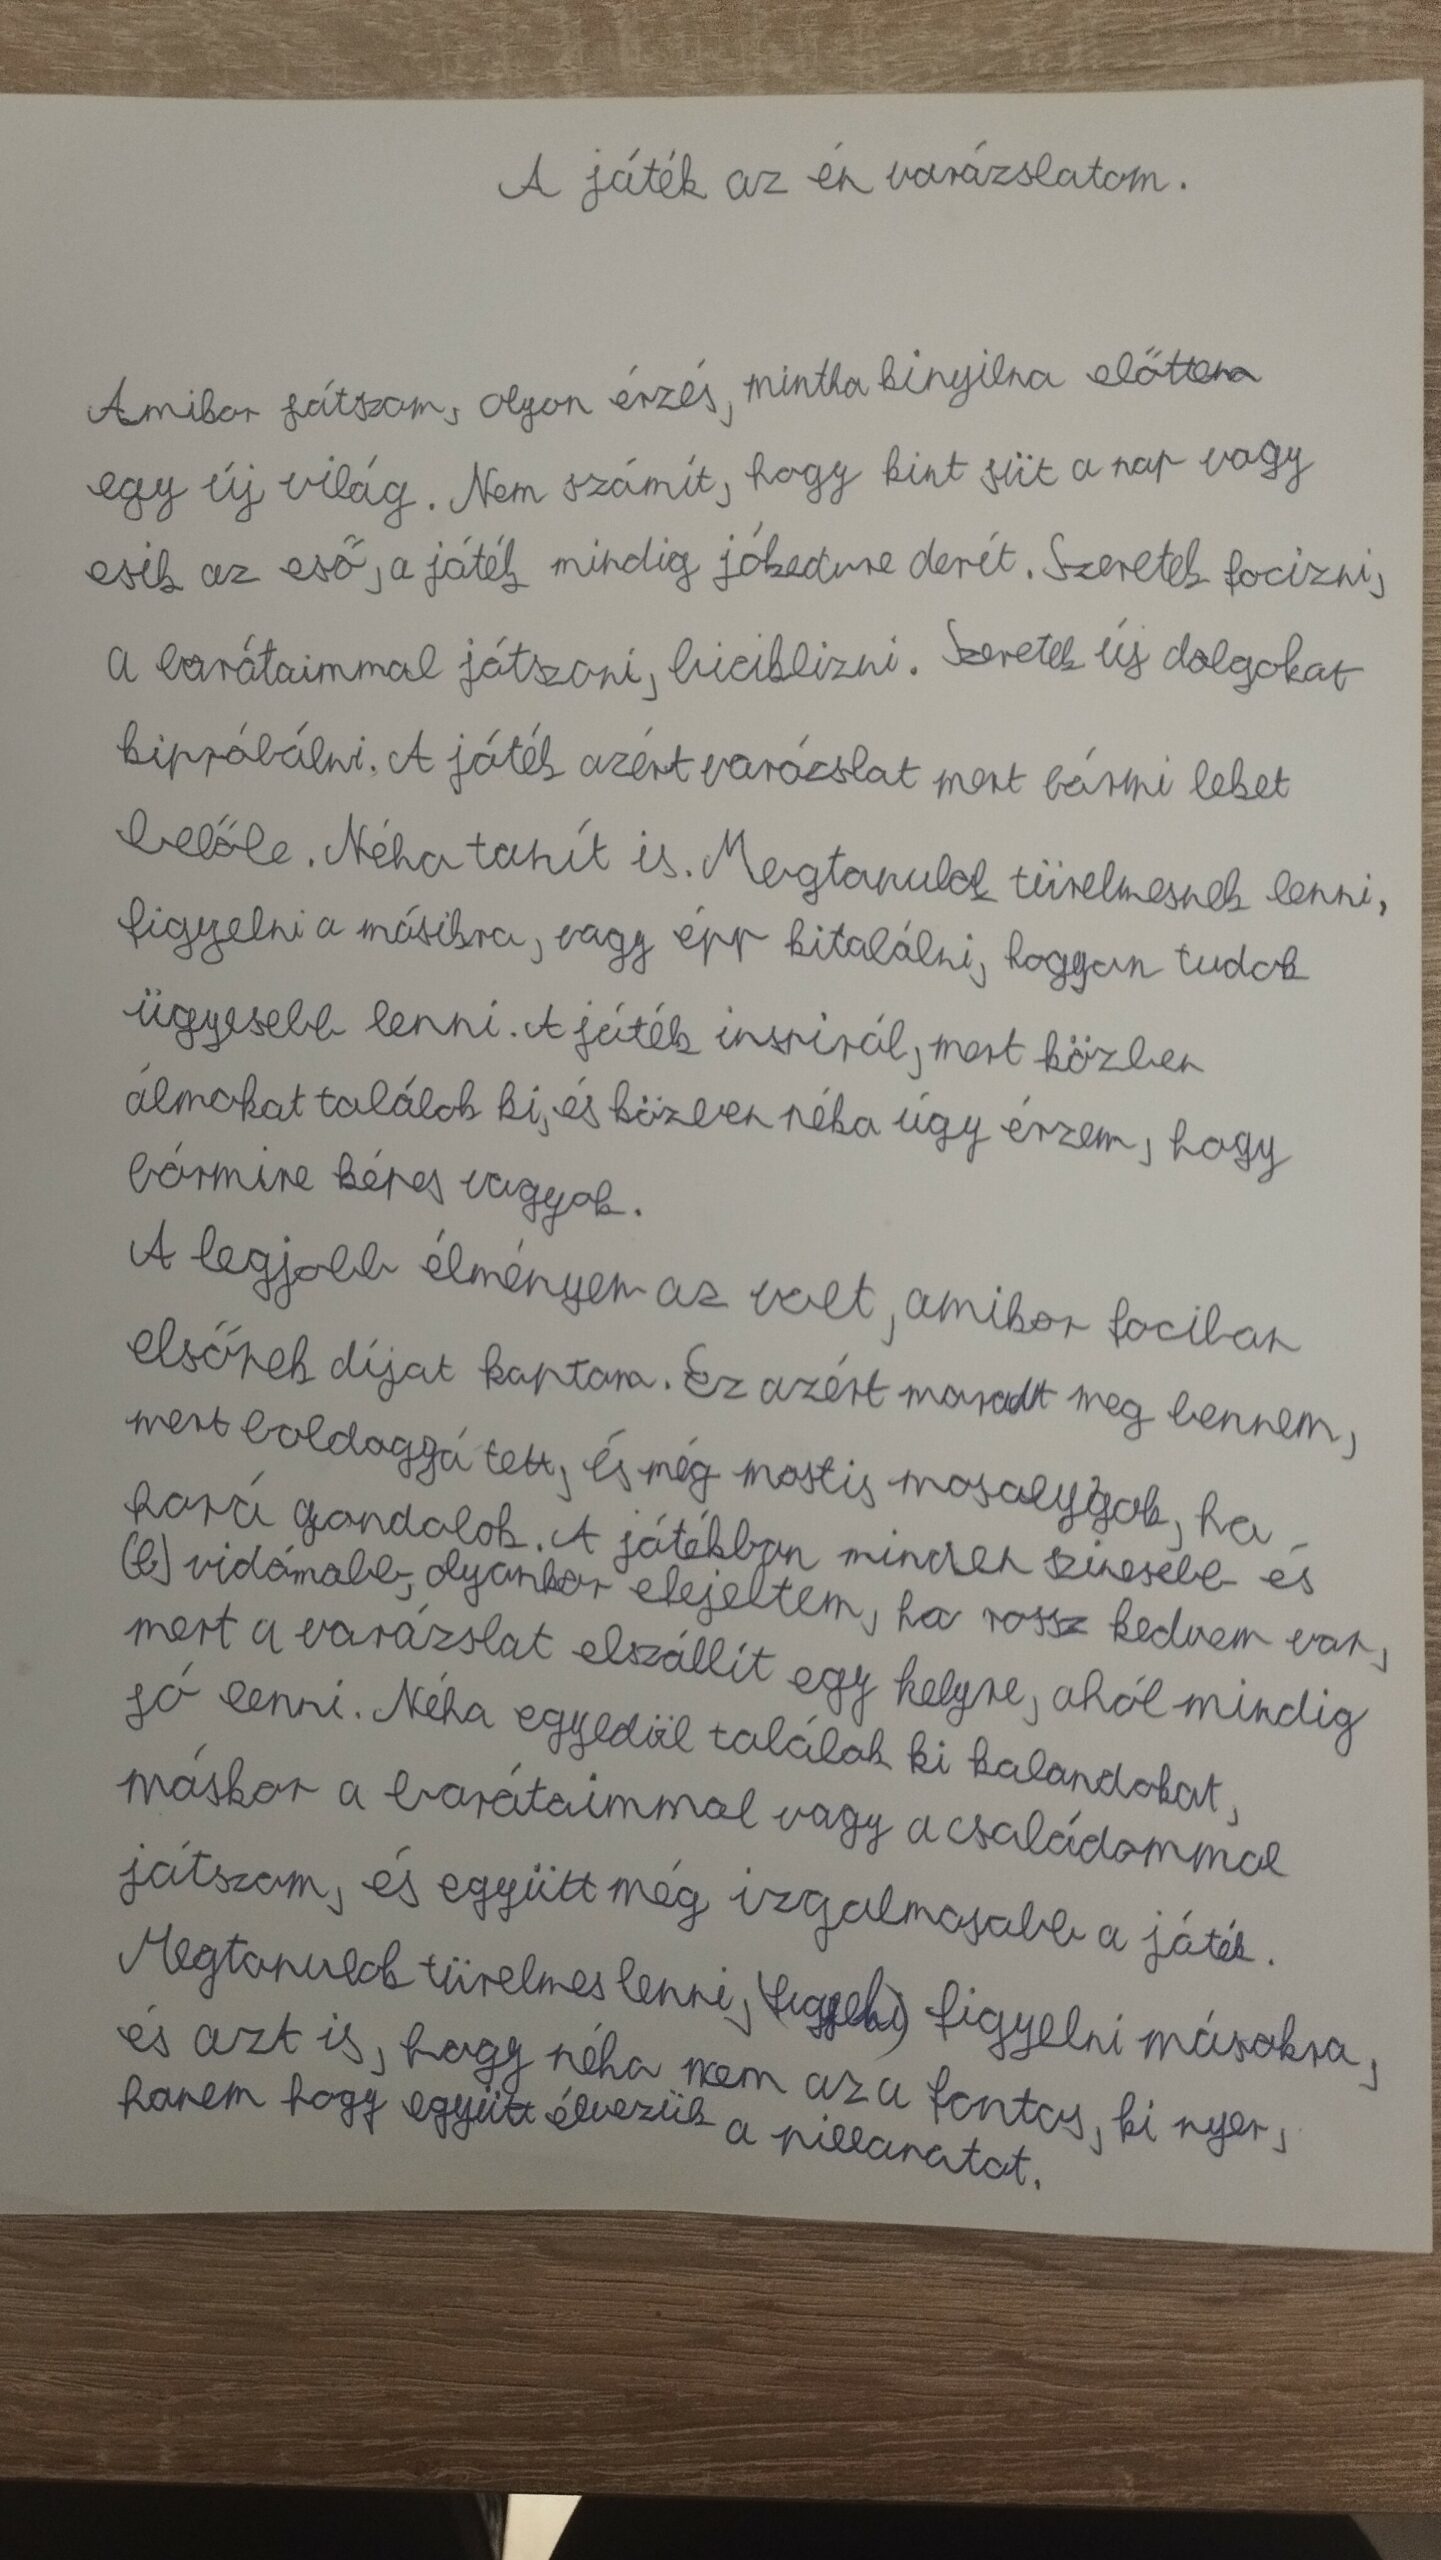 A játék az én varázslatom.
Amikor játszom, olyan érzés, mintha kinyílna előttem
egy új világ. Nem számít, hogy kint süt a nap vagy
esik az eső, a játék mindig jókedvre derít. Szeretek focizni,
a barátaimmal játszani, biciklizni. Szeretek új dolgokat
kipróbálni. A játék azért varázslat mert bármi lehet
belőle. Néha tanít is. Megtanulok türelmesnek lenni,
figyelni a másikra, vagy épp kitalálni, hogyan tudok
ügyesebb lenni. A játék inspirál, mert közben
álmokat találok ki, és közben néha úgy érzem, hogy
bármire képes vagyok.
A legjobb élményem az volt, amikor fociban
elsőnek díjat kaptam. Ez azért maradt meg bennem,
mert boldoggá tett, és még mostis mosolygok, ha
rá gondolok. A játékban minden színesebb és
(b) vidámabb, olyankor elejeltem, ha rossz kedvem van,
mert a varázslat elszállít egy helyre, ahól mindig
jó lenni. Néha egyedül találok ki kalandokat,
máskor a barátaimmal vagy a családommal
játszom, és együtt még izgalmasabb a játék.
Megtanulok türelmes lenni, (figyelni) figyelni másokra,
és azt is, hogy néha nem az a fontos, ki nyer,
hanem hogy együtt élvezük a pillanatot.